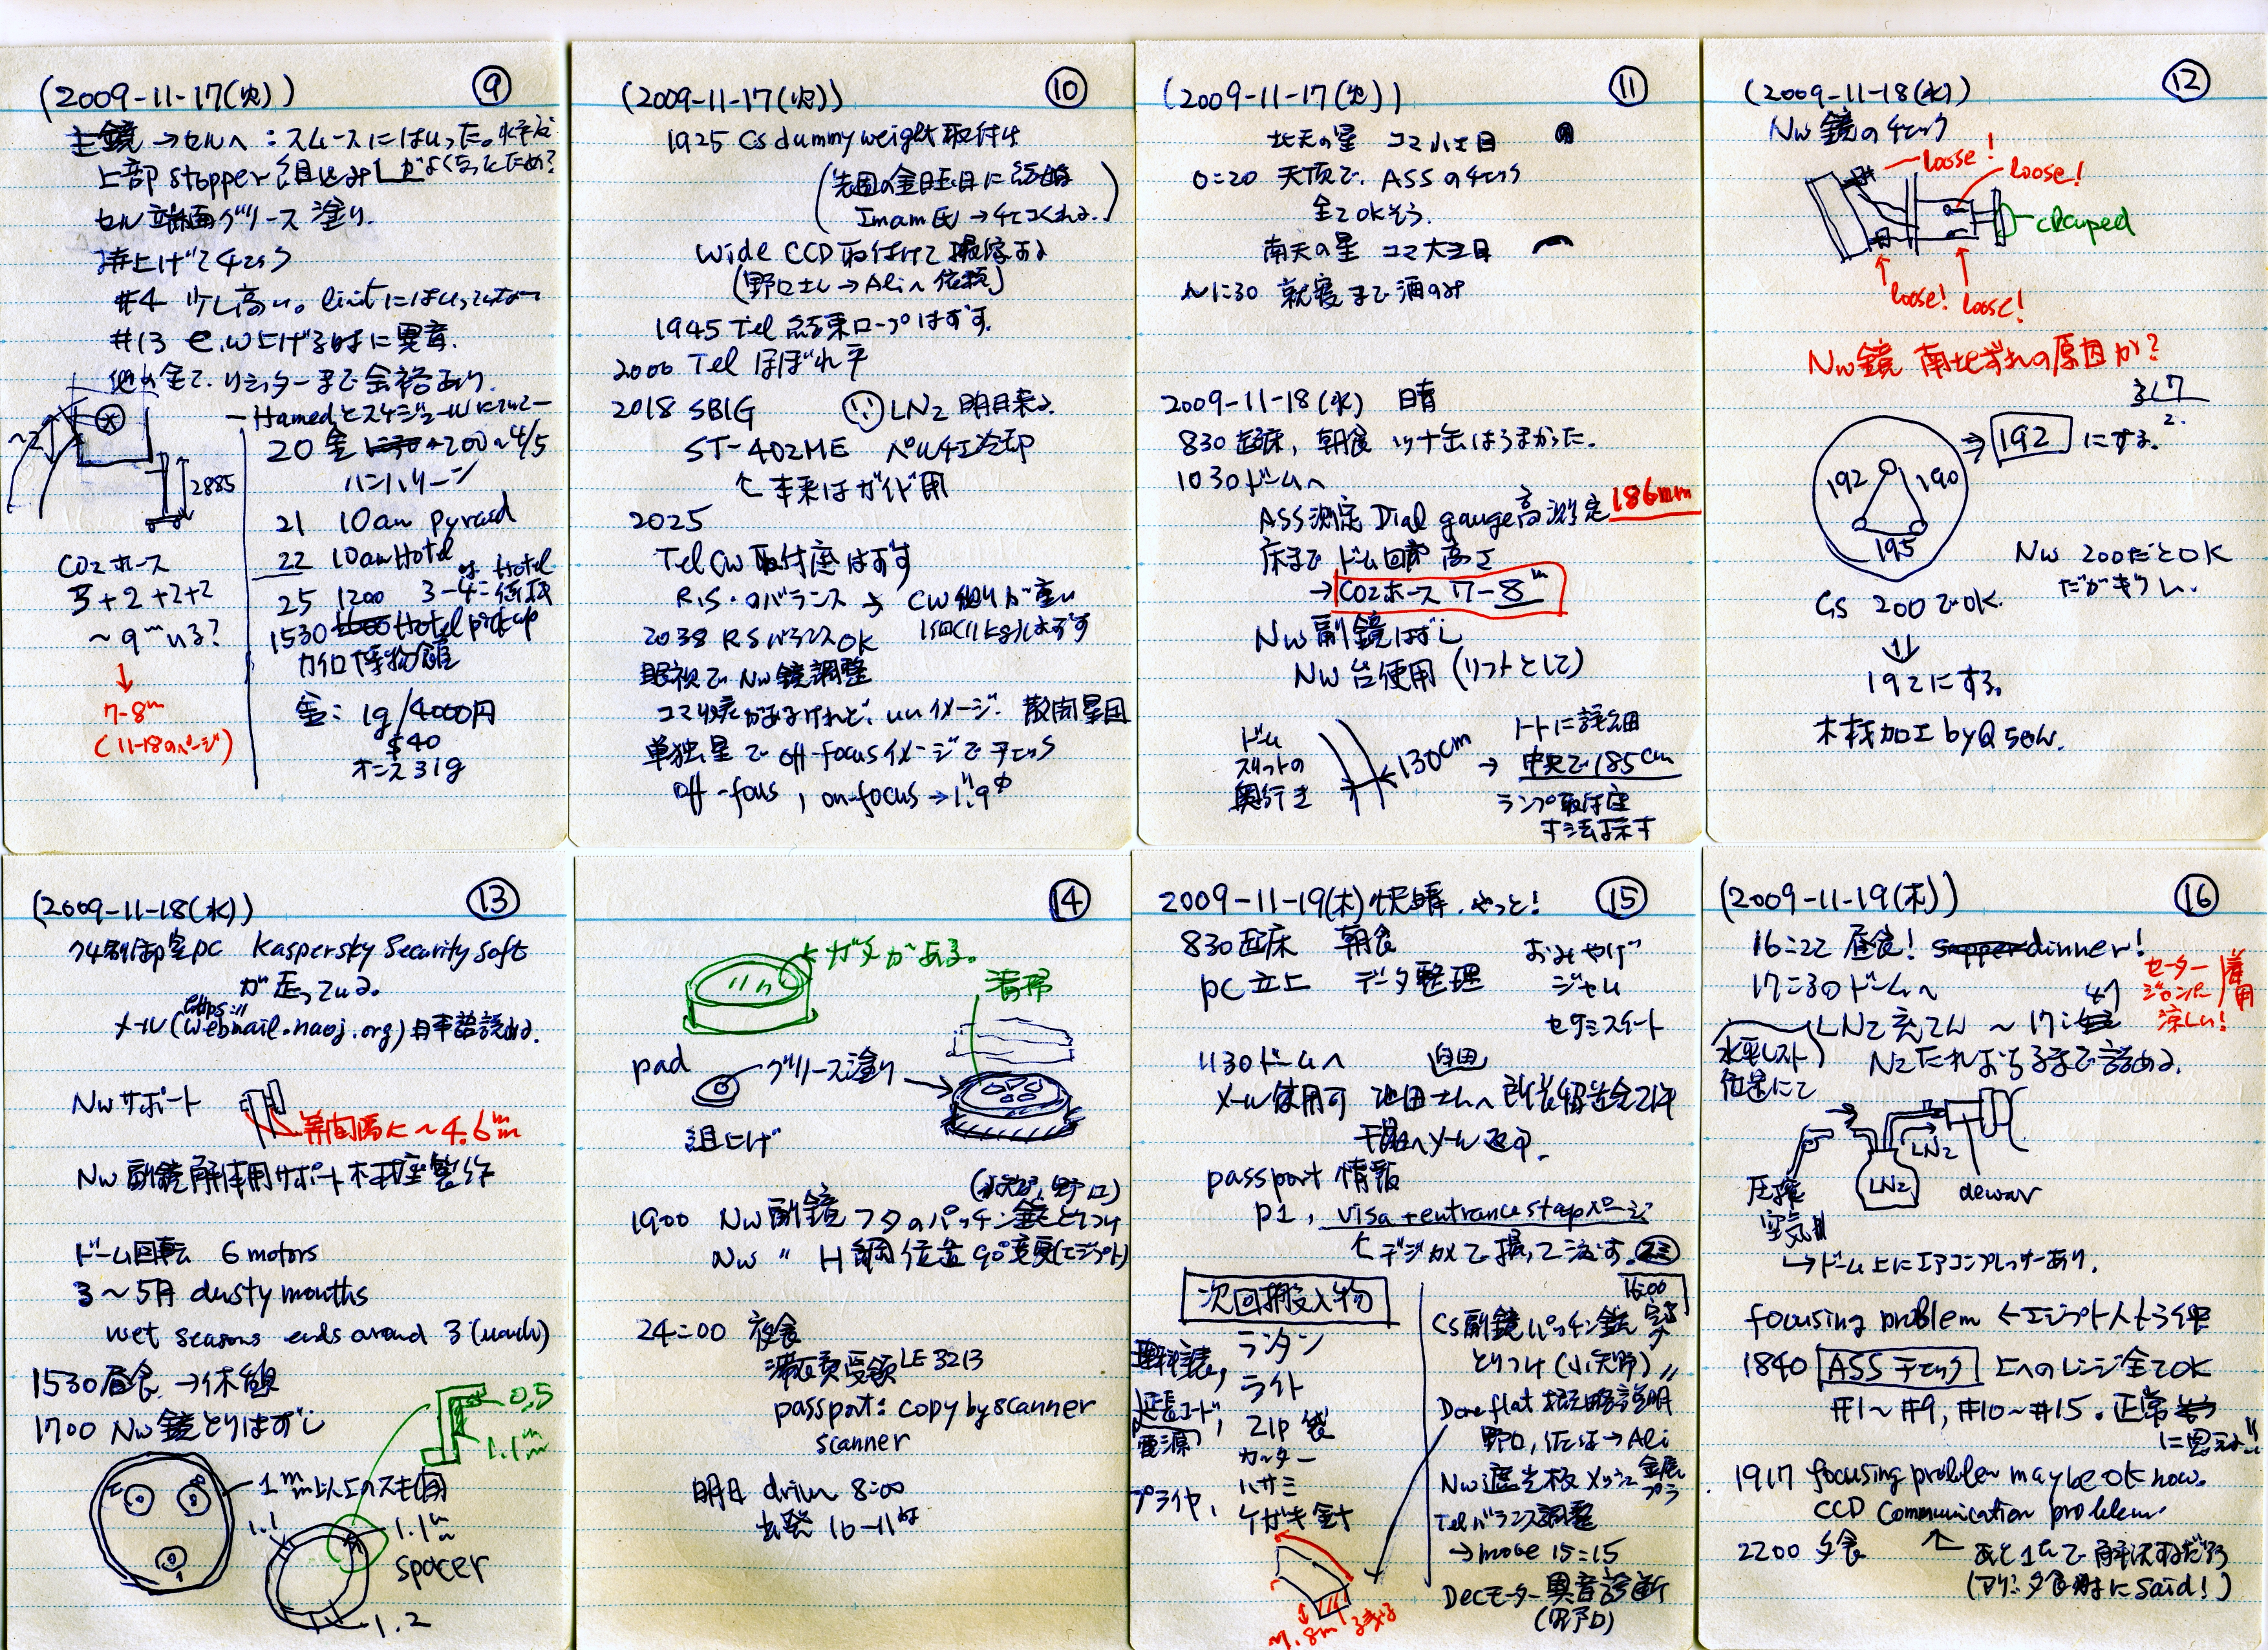 (2009-11-17(火)) ⑨
主鏡→セルへ：スムースにはいった。水平が
上部stopper組込み よくなったため？
セル端面グリース塗り.
持上げてチェック
#4 少し高い。limitにはいってない
#13 e,w上げる時に異音.
他は全て. リミッターまで余裕あり.
Hamedとスケジュールについて
20 金 200~4/5
ハンハリーリ
2885
21 10am pyramid
22 10am Hotel
25 1200 3-4に Hotel
1530 Hotel pickup
カイロ博物館
金：1g/4000円
$40
オンス31g
CO2ホース
3+2+2+2
~9mいる？
↓
7-8m
(11-18のページ)
(2009-11-17(火)) ⑩
1925 Cs dummy weight取付け
(先週の金曜日に
Imam氏→)
Wide CCD取付けて撮像する
(野口さん→Aliへ依頼)
1945 Tel 結束ロープはずす.
2000 Tel ほぼ水平
2018 SBIG LN2 明日来る.
ST-402ME ペルチエ冷却
↑本来はガイド用
2025
Tel CW取付座はずす
R.S.のバランス→CW側が重い
1個(11kg)はずす
2038 RSバランスOK
眼視でNw鏡調整
コマ収差があるけれど、いいイメージ. 散開星団
単独星でoff-focusイメージでチェック
off-focus, on-focus→1."9φ
(2009-11-17(火)) ⑪
北天の星 コマ小さ目
0:20 天頂で. ASSのチェック
全てOKそう.
南天の星 コマ大き目
~1:30 就寝まで酒のみ
2009-11-18(水) 晴
830起床, 朝食 ツナ缶はうまかった.
1030ドームへ
ASS測定 Dial gauge高測定 186mm
床まで ドーム回廊高さ
→CO2ホース 7-8m
Nw副鏡はずし
Nw台使用(リフトとして)
ドーム
スリットの
奥行き
130cm
→
ノートに詳細
中央で185cm
ランプ取付座
寸法示す
(2009-11-18(水)) ⑫
Nw鏡のチェック
loose!
loose!
clamped
loose! loose!
Nw鏡 南北ずれの原因か？
192 190
195
⇒ 192 にする.
Nw 200だとOK
だがギリギリ.
Cs 200でOK.
⇓
192にする.
木材加工 by Q Sow.
(2009-11-18(水)) ⑬
制御室pc Kaspersky Security Soft
が走っている.
https://
メール(webmail.naoj.org)日本語読める.
Nwサポート
等間隔に~4.6mm
Nw副鏡解体用サポート木材座製作
ドーム回転 6 motors
3~5月 dusty months
wet seasons ends around 3(march)
1530昼食→休憩
1700 Nw鏡とりはずし
0.5
1.1mm
1mm以上のスキ間
1.1 1.1mm
spacer
1.2
⑭
ガタがある.
清掃
pad
グリース塗り
組上げ
(小矢野, 野口)
1900 Nw副鏡フタのパッチン錠とりつけ
Nw 〃 H鋼位置90°変更(エジプト)
24:00 夜食
滞在費受領LE3213
passport: copy by scanner
scanner
明日 driver 8:00
出発 10-11時
2009-11-19(木)快晴. やっと! ⑮
830起床 朝食 おみやげ
pc立上 データ整理 ジャム
セサミスイート
1130ドームへ
メール使用可 池田さんへ
メール返却.
passport情報
p1, visa+entrance stampページ
↑デジカメで撮って渡す. 済
次回搬入物
ランタン
ライト
延長コード, ZIP袋
電源
カッター
ハサミ
プライヤ, ケガキ針
16:00
Cs副鏡パッチン錠 完了
とりつけ(小矢野)
Dome flat 概略説明
野口, 佐々→Ali
Nw遮光板 メッシュ 金属
プラ
Telバランス調整
→move 15:15
Decモーター異音診断
(野口)
~1.8m
(2009-11-19(木)) ⑯
16:22 昼食! dinner!
17:30ドームへ
セーター
ジャンパー
着用
涼しい!
LN2充てん ~17:47
水平レスト
位置にて
N2たれおちるまで詰める.
LN2
LN2
圧搾
空気
dewar
→ドーム上にエアコンプレッサーあり.
focusing problem ←エジプト人も
1840 ASSチェック 上へのレンジ全てOK
#1~#9, #10~#15. 正常
に思える
1917 focusing problem may be ok now.
CCD Communication problem.
2200 夕食 ↑ あと1hで解決するだろう
(アリ: 夕食時に said!)